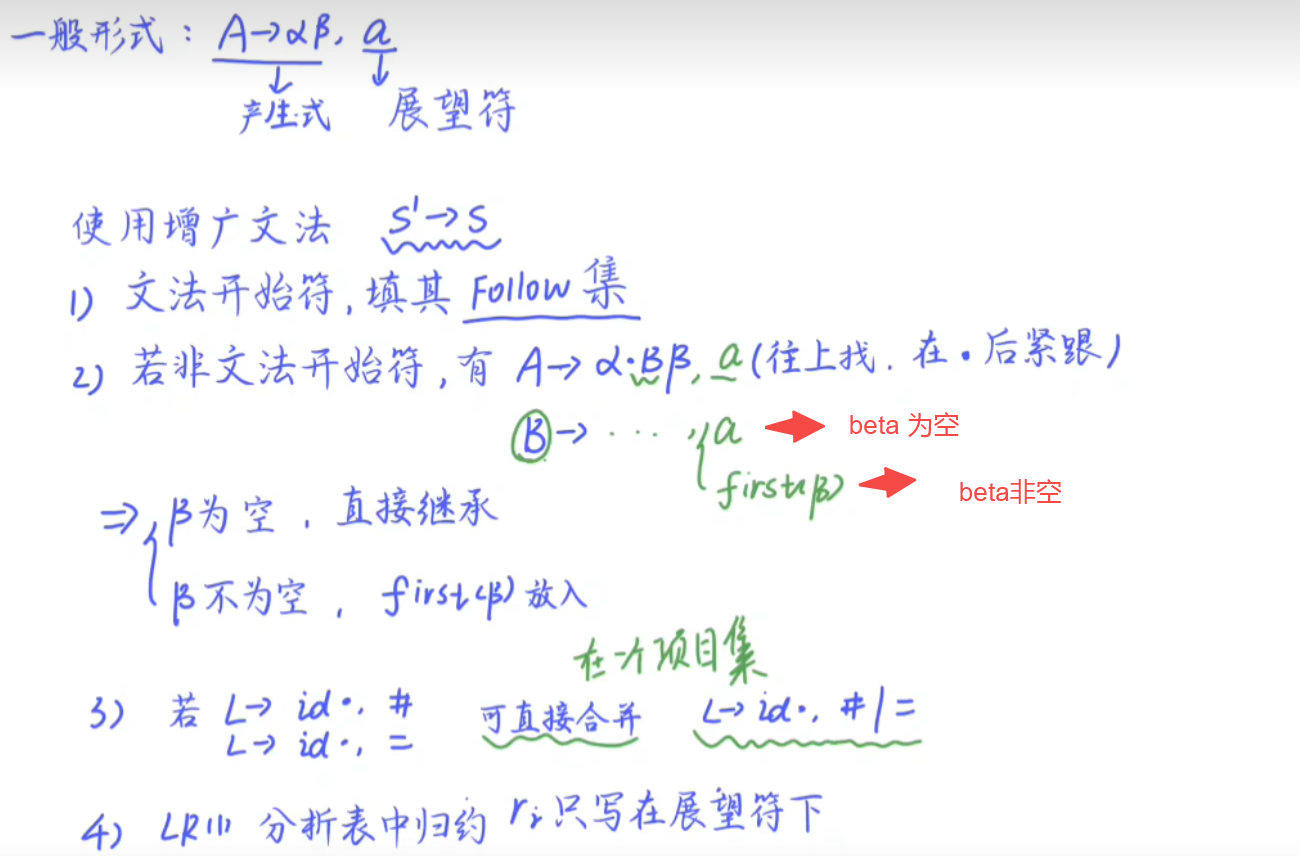 一般形式：A→αβ，a
产生式 展望符
使用增广文法 S'→S
1) 文法开始符，填其 Follow 集
2) 若非文法开始符，有 A→α·Bβ，a (往上找．在·后紧跟)
B→ ··· ，a beta 为空
first(β) beta非空
⇒ β为空，直接继承
β不为空，first(β) 放入
在一个项目集
3) 若 L→ id·，# 可直接合并 L→id·，#|=
L→ id·，=
4) LR(1) 分析表中归约 ri 只写在展望符下